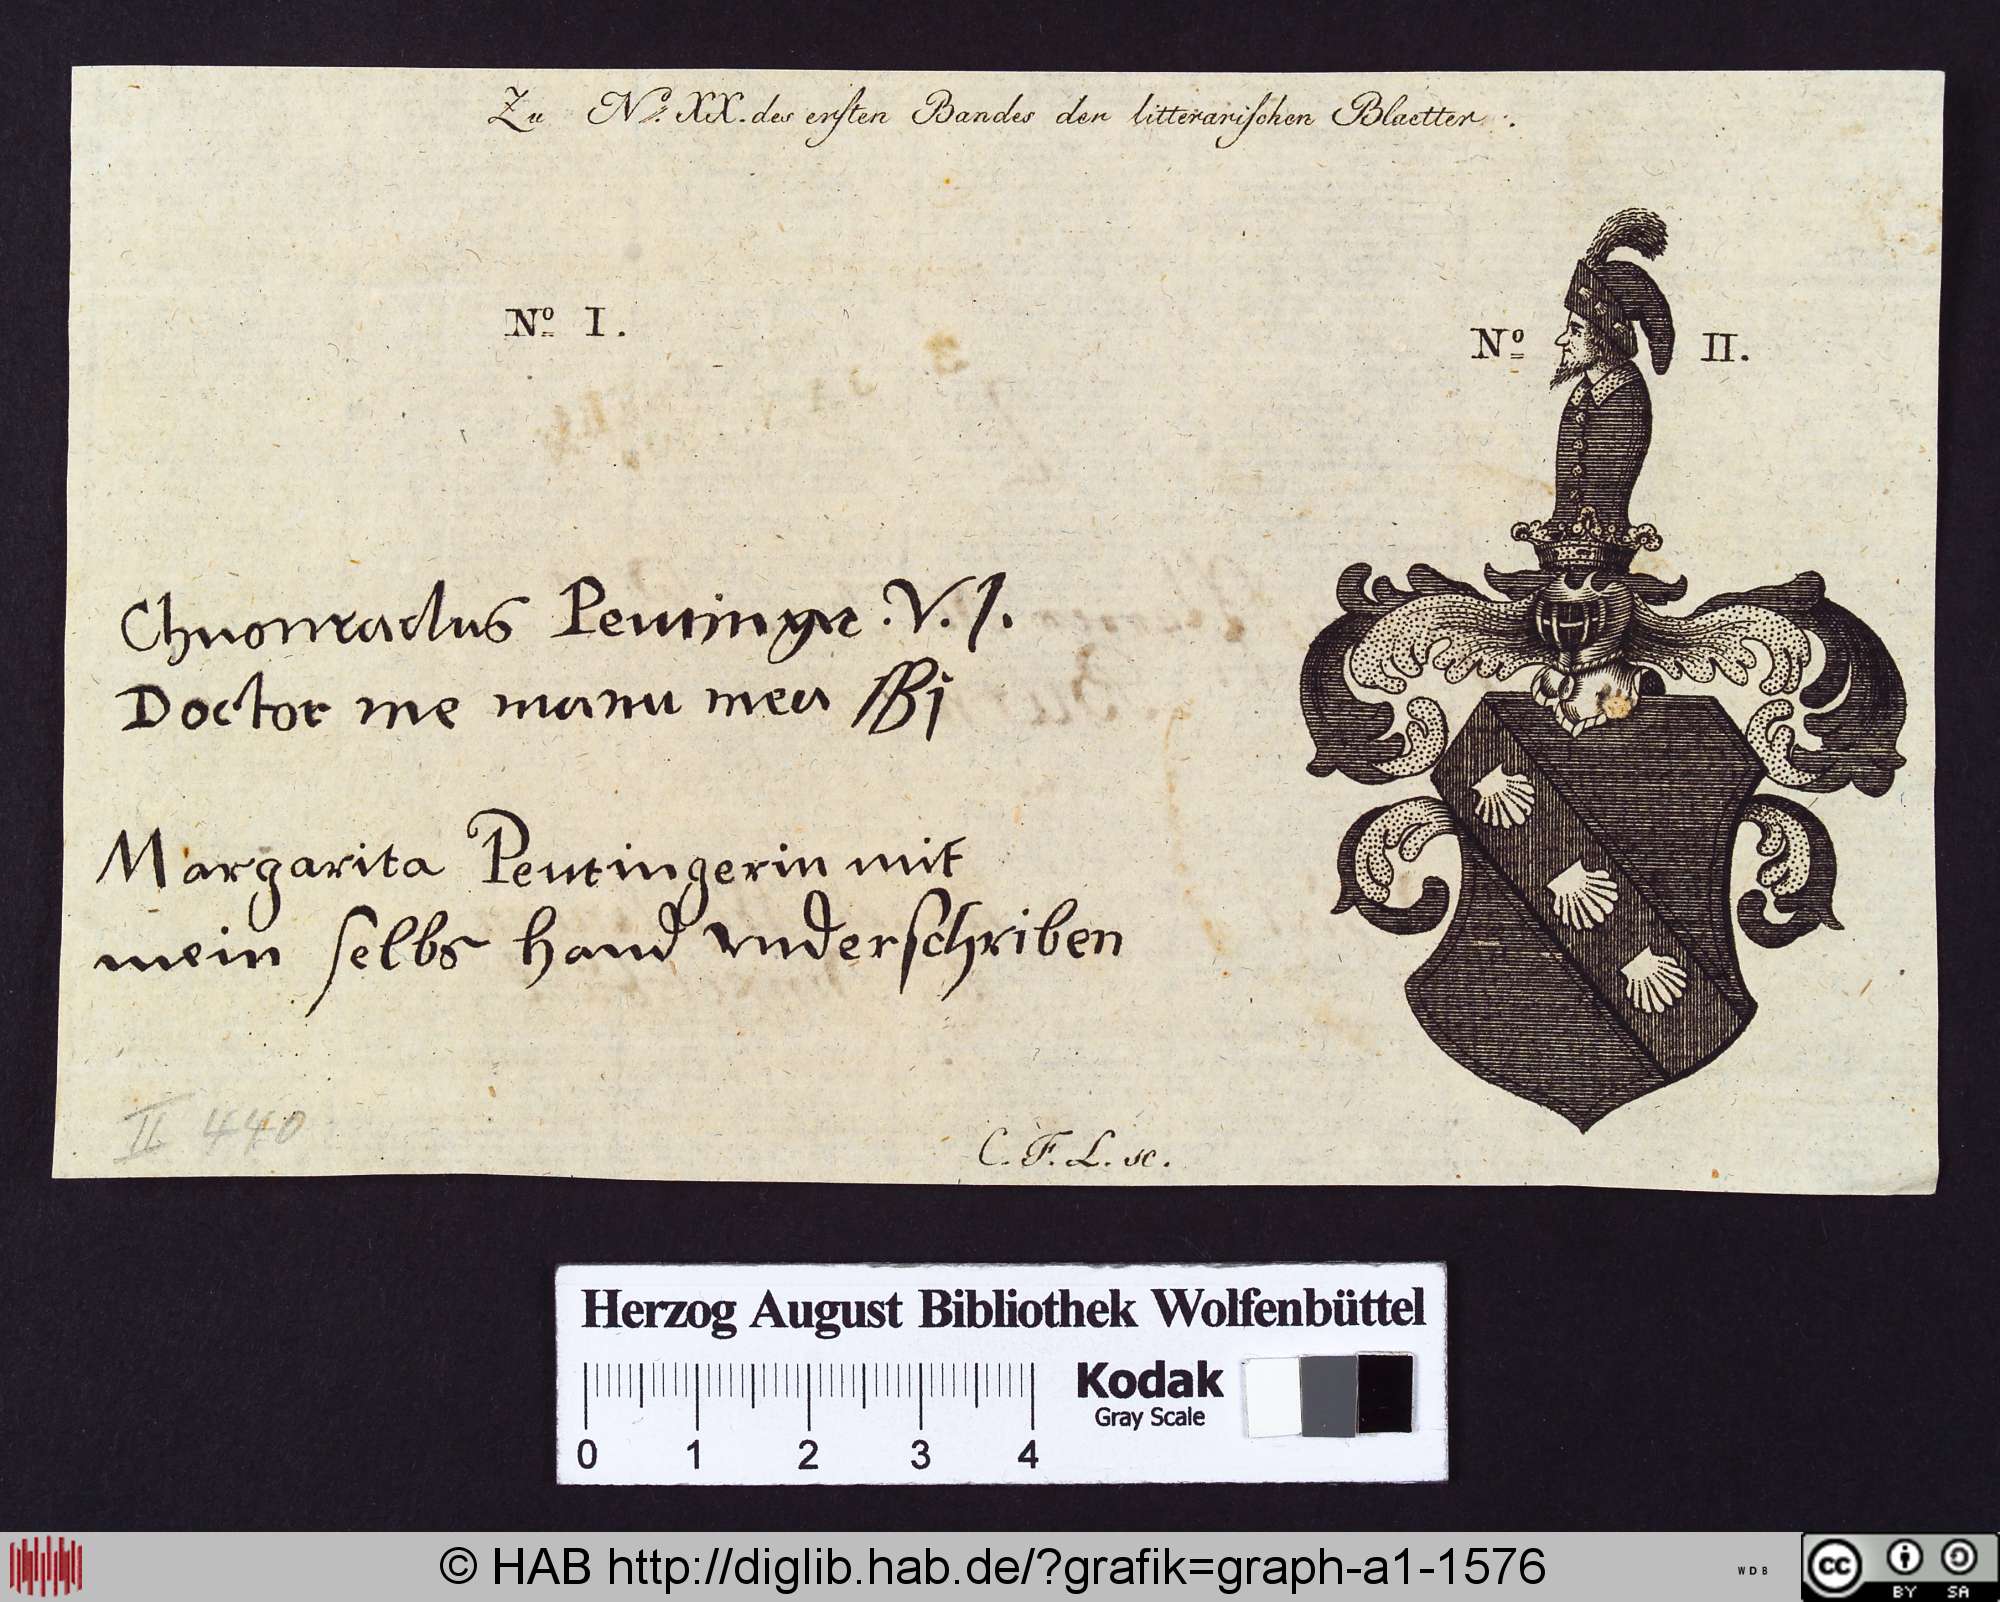 Zu No. XX. des ersten Bandes der litterarischen Blaetter.
No I.
No II.
Chuonradus Peutinger. V. J.
Doctor me manu mea
Margarita Peutingerin mit
mein selbs hand vnderschriben
II 440
C. F. L. sc.
Herzog August Bibliothek Wolfenbüttel
0 1 2 3 4
Kodak
Gray Scale
© HAB http://diglib.hab.de/?grafik=graph-a1-1576
WDB
cc BY SA